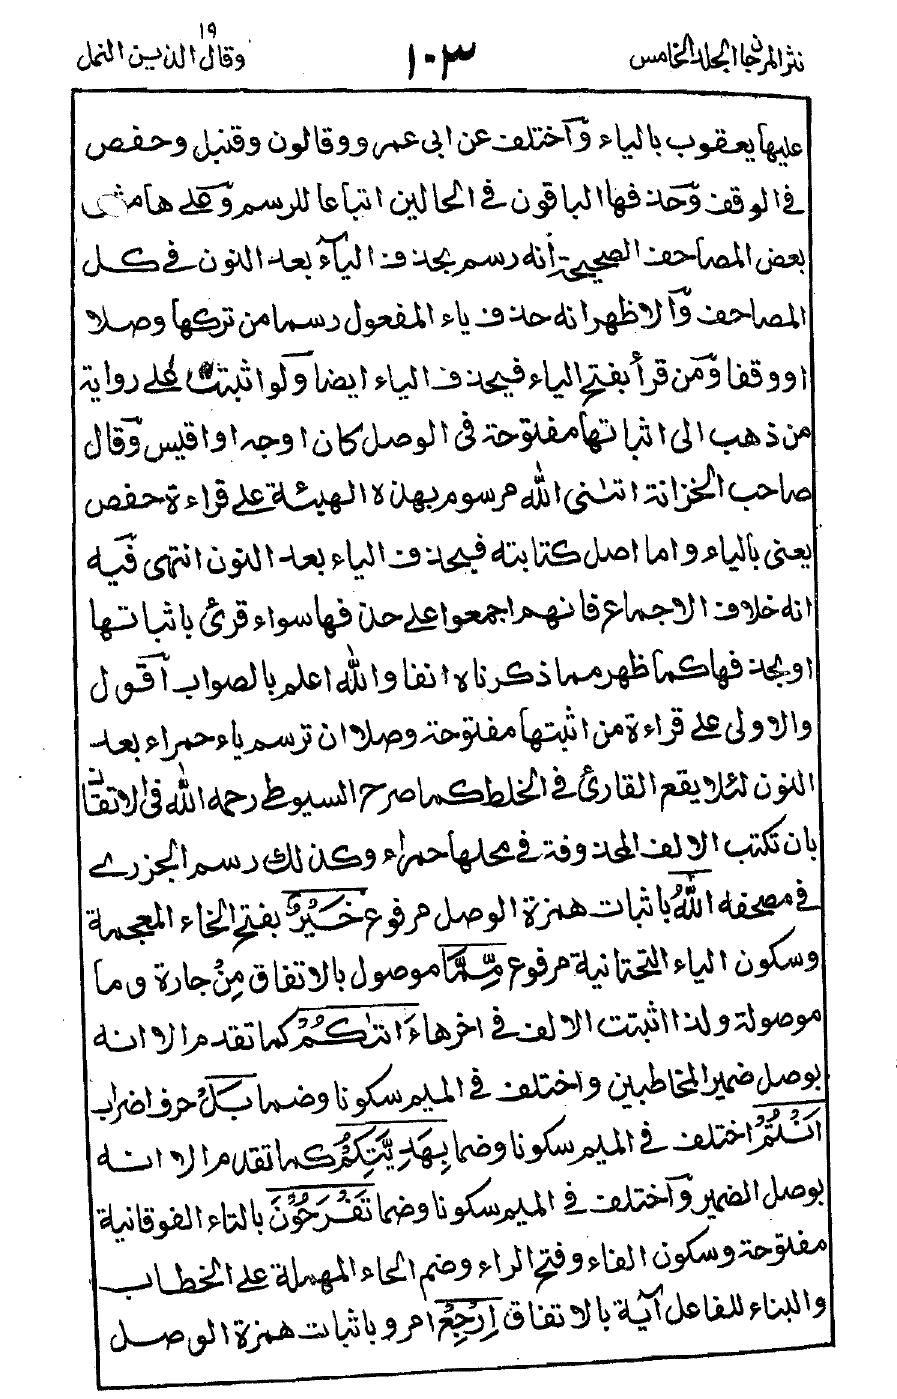 نثر المرجان الجلد الخامس ١٠٣ وقال الذين ١٩ النمل
عليها يعقوب بالياء وآختلف عن ابى عمرو وقالون وقنبل وحفص
فى الوقف وحذفها الباقون فى الحالين اتباعا للرسم وعلى هامش
بعض المصاحف الصحيحة انه رسم بحذف الياء بعد النون فى كل
المصاحف وآلاظهر انه حذف ياء المفعول رسما من تركها وصلا
اووقفا ومن قرأ بفتح الياء فيحذف الياء ايضا ولو اثبتت على رواية
من ذهب الى اثباتها مفتوحة فى الوصل كان اوجه اواقيس وقال
صاحب الخزانة اتٰىنى الله مرسوم بهذه الهيئة على قراءة حفص
يعنى بالياء واما اصل كتابته فبحذف الياء بعد النون انتهى فيه
انه خلاف الاجماع فانهم اجمعوا على حذفها سواء قرئ باثباتها
اوبحذفها كما ظهر مما ذكرناه انفا والله اعلم بالصواب آقول
والاولى على قراءة من اثبتها مفتوحة وصلا ان ترسم ياء حمراء بعد
النون لئلا يقع القارئ فى الخلط كما صرح السيوطى رحمه الله فى الاتقان
بان تكتب الالف المحذوفة فى محلها حمراء وكذلك رسم الجزرے
فى مصحفه اَللّٰهُ باثبات همزة الوصل مرفوع خَيْرٌ بفتح الخاء المعجمة
وسكون الياء التحتانية مرفوع مِمَّا موصول بالاتفاق مِنْ جارة وما
موصولة ولذا اثبتت الالف فى اخرها ءَاتٰىكُمْ كما تقدم الا انه
بوصل ضمير المخاطبين واختلف فى الميم سكونا وضما بَلْ حرف اضراب
اَنْتُمْ اختلف فى الميم سكونا وضما بِهَدِيَّتِكُمْ كما تقدم الا انه
بوصل الضمير وآختلف فى الميم سكونا وضما تَفْرَحُوْنَ بالتاء الفوقانية
مفتوحة وسكون الفاء وفتح الراء وضم الحاء المهملة على الخطاب
والبناء للفاعل آية بالاتفاق اِرْجِعْ امر وباثبات همزة الوصل